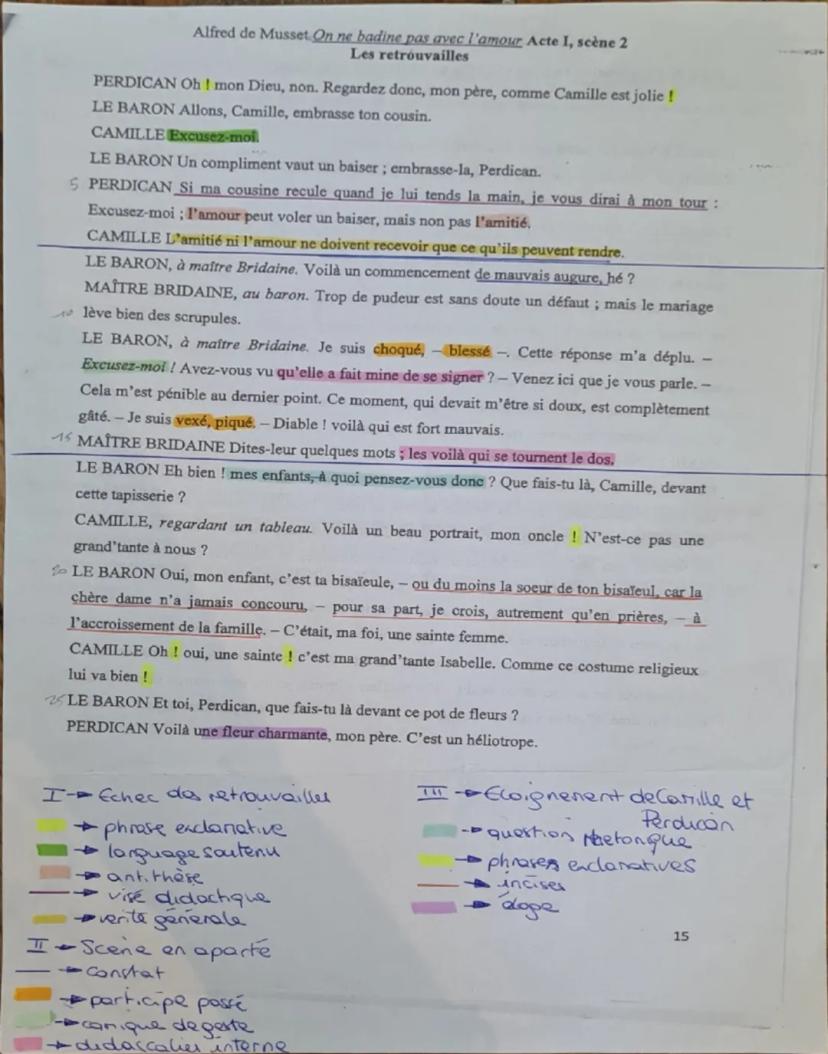 Alfred de Musset On ne badine pas avec l'amour Acte I, scène 2
Les retrouvailles
PERDICAN Oh ! mon Dieu, non. Regardez donc, mon père, comme Camille est jolie !
LE BARON Allons, Camille, embrasse ton cousin.
CAMILLE Excusez-moi.
LE BARON Un compliment vaut un baiser ; embrasse-la, Perdican.
5 PERDICAN Si ma cousine recule quand je lui tends la main, je vous dirai à mon tour :
Excusez-moi ; l'amour peut voler un baiser, mais non pas l'amitié.
CAMILLE L'amitié ni l'amour ne doivent recevoir que ce qu'ils peuvent rendre.
LE BARON, à maître Bridaine. Voilà un commencement de mauvais augure, hé ?
MAÎTRE BRIDAINE, au baron. Trop de pudeur est sans doute un défaut ; mais le mariage
10 lève bien des scrupules.
LE BARON, à maître Bridaine. Je suis choqué, – blessé –. Cette réponse m'a déplu. –
Excusez-moi ! Avez-vous vu qu'elle a fait mine de se signer ? – Venez ici que je vous parle. –
Cela m'est pénible au dernier point. Ce moment, qui devait m'être si doux, est complètement
gâté. – Je suis vexé, piqué. – Diable ! voilà qui est fort mauvais.
15 MAÎTRE BRIDAINE Dites-leur quelques mots ; les voilà qui se tournent le dos.
LE BARON Eh bien ! mes enfants, à quoi pensez-vous donc ? Que fais-tu là, Camille, devant
cette tapisserie ?
CAMILLE, regardant un tableau. Voilà un beau portrait, mon oncle ! N'est-ce pas une
grand'tante à nous ?
20 LE BARON Oui, mon enfant, c'est ta bisaïeule, – ou du moins la soeur de ton bisaïeul, car la
chère dame n'a jamais concouru, – pour sa part, je crois, autrement qu'en prières, – à
l'accroissement de la famille. – C'était, ma foi, une sainte femme.
CAMILLE Oh ! oui, une sainte ! c'est ma grand'tante Isabelle. Comme ce costume religieux
lui va bien !
25 LE BARON Et toi, Perdican, que fais-tu là devant ce pot de fleurs ?
PERDICAN Voilà une fleur charmante, mon père. C'est un héliotrope.
I → Echec des retrouvailles
→ phrase exclamative
→ language soutenu
→ antithèse
→ visé didactique
→ verité générale
II → Scène en aparté
→ constat
→ participe passé
→ comique de geste
→ didascalies interne
III → Eloignement de Camille et
Perdican
→ question rhetorique
→ phrases exclamatives
→ incises
→ éloge
15